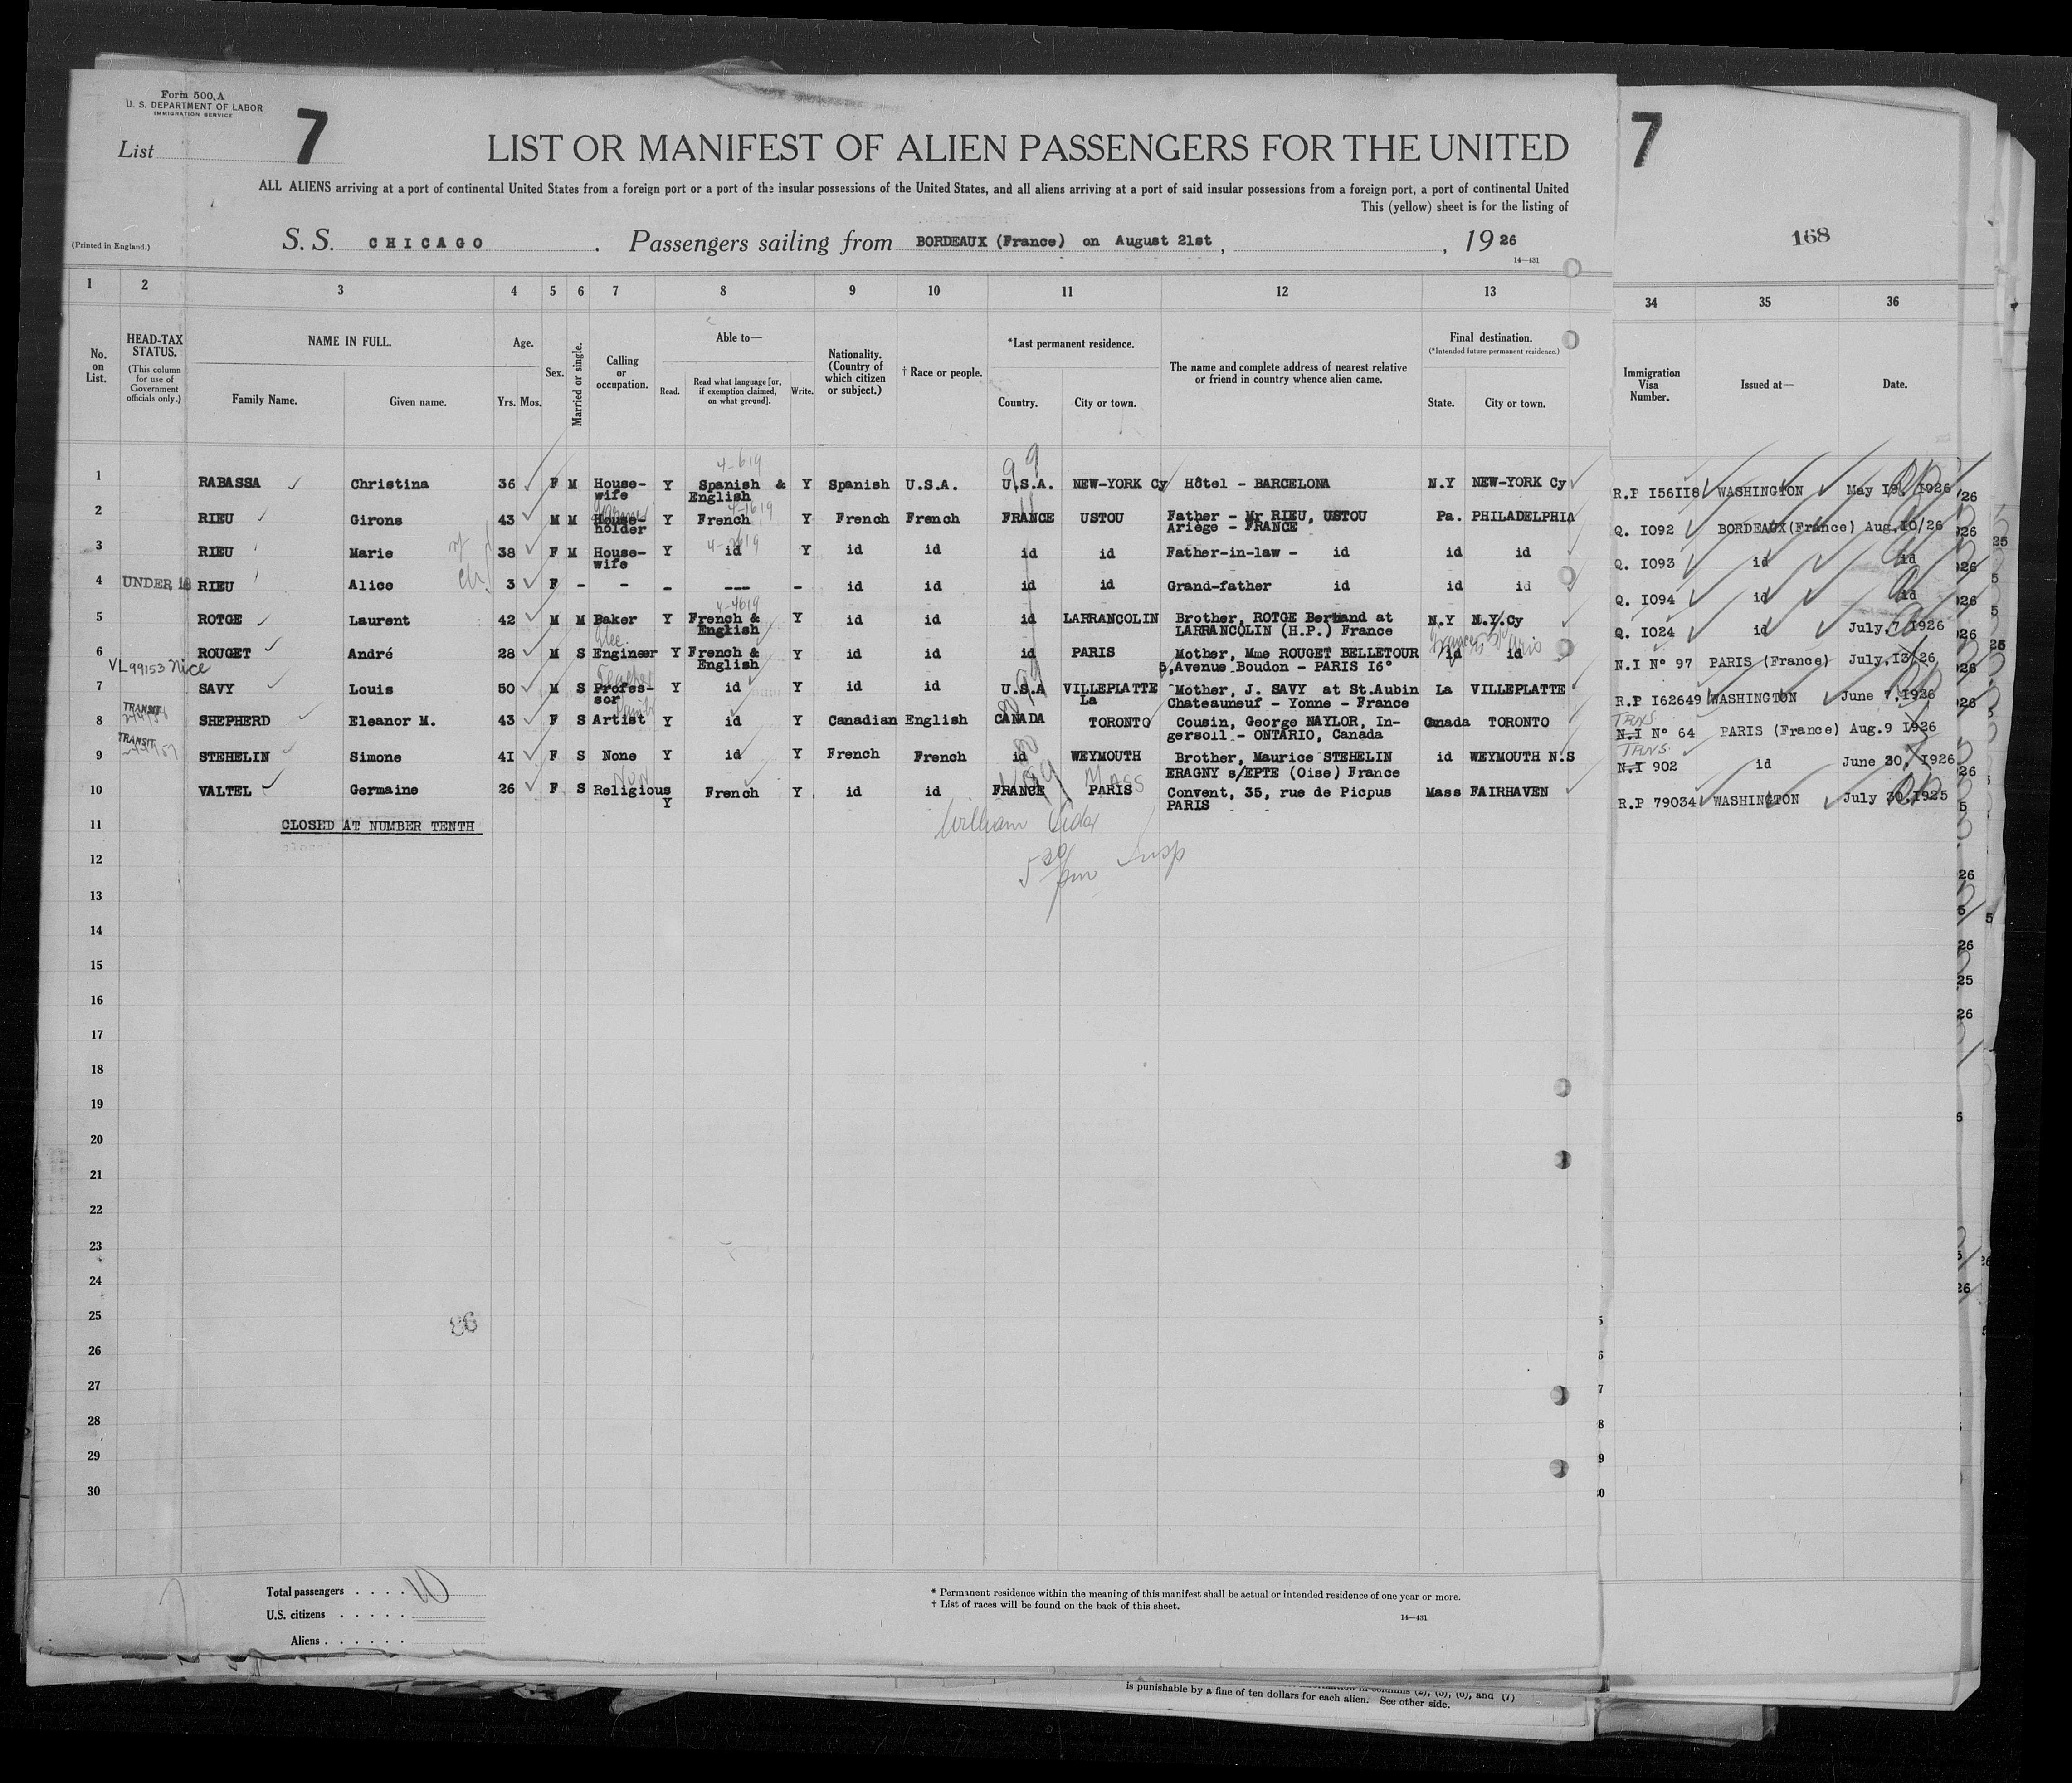 Form 500 A
U. S. DEPARTMENT OF LABOR
IMMIGRATION SERVICE
List 7
LIST OR MANIFEST OF ALIEN PASSENGERS FOR THE UNITED
7
ALL ALIENS arriving at a port of continental United States from a foreign port or a port of the insular possessions of the United States, and all aliens arriving at a port of said insular possessions from a foreign port, a port of continental United
This (yellow) sheet is for the listing of
(Printed in England.)
S. S. CHICAGO . Passengers sailing from BORDEAUX (France) on August 21st, , 1926
168
14—431
1 2 3 4 5 6 7 8 9 10 11 12 13 34 35 36
No. on List.
HEAD-TAX STATUS.
(This column for use of Government officials only.)
NAME IN FULL.
Family Name. Given name.
Age.
Yrs. Mos.
Sex.
Married or single.
Calling or occupation.
Able to—
Read. Read what language [or, if exemption claimed, on what ground]. Write.
Nationality. (Country of which citizen or subject.)
† Race or people.
*Last permanent residence.
Country. City or town.
The name and complete address of nearest relative or friend in country whence alien came.
Final destination.
(*Intended future permanent residence.)
State. City or town.
Immigration Visa Number.
Issued at—
Date.
4-619 99
1 RABASSA Christina 36 F M House-wife Y Spanish & English Y Spanish U.S.A. U.S.A. NEW-YORK Cy Hôtel - BARCELONA N.Y NEW-YORK Cy R.P I56II8 WASHINGTON May 19, 1926
2 RIEU Girons 43 M M House-holder Y French Y French French FRANCE USTOU Father - Mr RIEU, USTOU Ariège - FRANCE Pa. PHILADELPHIA Q. I092 BORDEAUX(France) Aug.10/26
3 RIEU Marie 38 F M House-wife Y id Y id id id id Father-in-law - id id id Q. I093 id id
4 UNDER 16 RIEU Alice 3 F - - - --- - id id id id Grand-father id id id Q. I094 id id
5 ROTGE Laurent 42 M M Baker Y French & English Y id id id LARRANCOLIN Brother, ROTGE Bertrand at LARRANCOLIN (H.P.) France N.Y N.Y.Cy Q. I024 id July,7,1926
6 ROUGET André 28 M S Engineer Y French & English Y id id id PARIS Mother, Mme ROUGET BELLETOUR 5,Avenue Boudon - PARIS I6° id id N.I N° 97 PARIS (France) July,13/26
VL99153 Nice
7 SAVY Louis 50 M S Profes-sor Y id Y id id U.S.A VILLEPLATTE La Mother, J. SAVY at St.Aubin Chateauneuf - Yonne - France La VILLEPLATTE R.P I62649 WASHINGTON June 7,1926
TRANSIT
8 SHEPHERD Eleanor M. 43 F S Artist Y id Y Canadian English CANADA TORONTO Cousin, George NAYLOR, In-gersoll - ONTARIO, Canada Canada TORONTO TRNS. N.I N° 64 PARIS (France) Aug.9 1926
TRANSIT
9 STEHELIN Simone 4I F S None Y id Y French French id WEYMOUTH Brother, Maurice STEHELIN ERAGNY s/EPTE (Oise) France id WEYMOUTH N.S TRNS. N.I 902 id June 30, 1926
10 VALTEL Germaine 26 F S Religious Y French Y id id FRANCE PARIS Convent, 35, rue de Picpus PARIS Mass FAIRHAVEN R.P 79034 WASHINGTON July 30,1925
Nun MASS
11 CLOSED AT NUMBER TENTH
William
5 30 pm Insp
12
13
14
15
16
17
18
19
20
21
22
23
24
25
26
27
28
29
30
Total passengers . . . . 10
U.S. citizens . . . . .
Aliens . . . . . .
* Permanent residence within the meaning of this manifest shall be actual or intended residence of one year or more.
† List of races will be found on the back of this sheet.
14—431
is punishable by a fine of ten dollars for each alien. See other side.